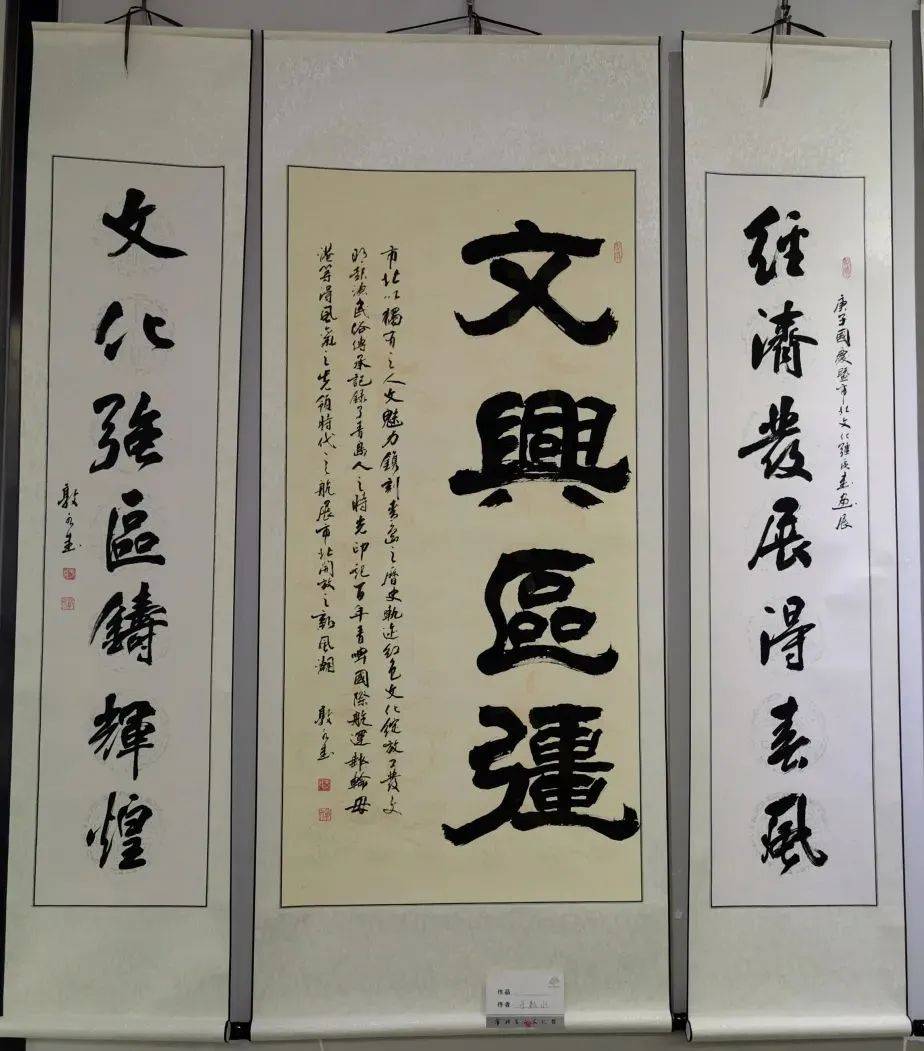 經濟發展得春風
庚子國慶暨市北文化強區書畫展
文興區彊
市北以獨有之人文魅力鐫刻青島之歷史軌迹紅色文化綻放了發文
明起源民俗傳承記錄了青島人之時光印記百年青啤國際航運郵輪母
港等得風氣之先領時代之航展市北開放之新風潮
敦永書
文化強區鑄輝煌
敦永書
作品
作者